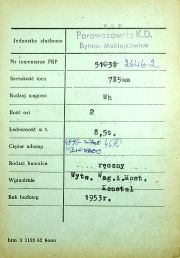 P. K. P.
Jednostka służbowa
Parowozownia K.D.
Bytom-Maciejkowice
Nr inwentarza PKP 51038 2646-2
Szerokość toru 785mm
Rodzaj wagonu Wh
Ilość osi 2
Ładowność w t. 8,5t.
Ciężar własny 4670
Rodzaj hamulca ręczny
Wytwórnia Wytw. Wag.i.Most.
Konstal
Rok budowy 1953r.